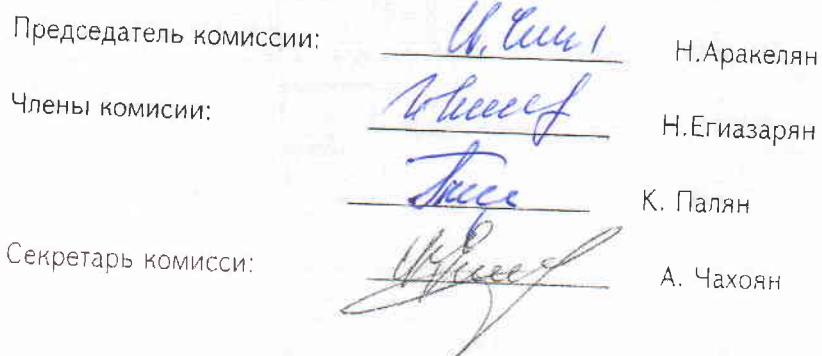 Председатель комиссии: Н.Аракелян
Члены комисии: Н.Егиазарян
К. Палян
Секретарь комисси: А. Чахоян